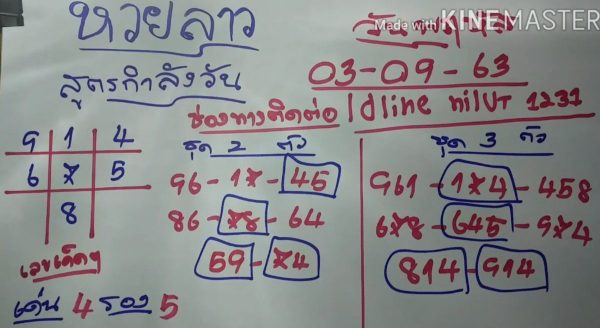 หวยลาว
Made with KINEMASTER
สูตรกำลังวัน
03-09-63
ช่องทางติดต่อ Idline
1231
9 1 4
6 7 5
8
ชุด 2 ตัว
96-17-45
86-78-64
59-74
ชุด 3 ตัว
961-174-458
678-645-974
814-914
เลขเด็ดๆ
เด่น 4 รอง 5